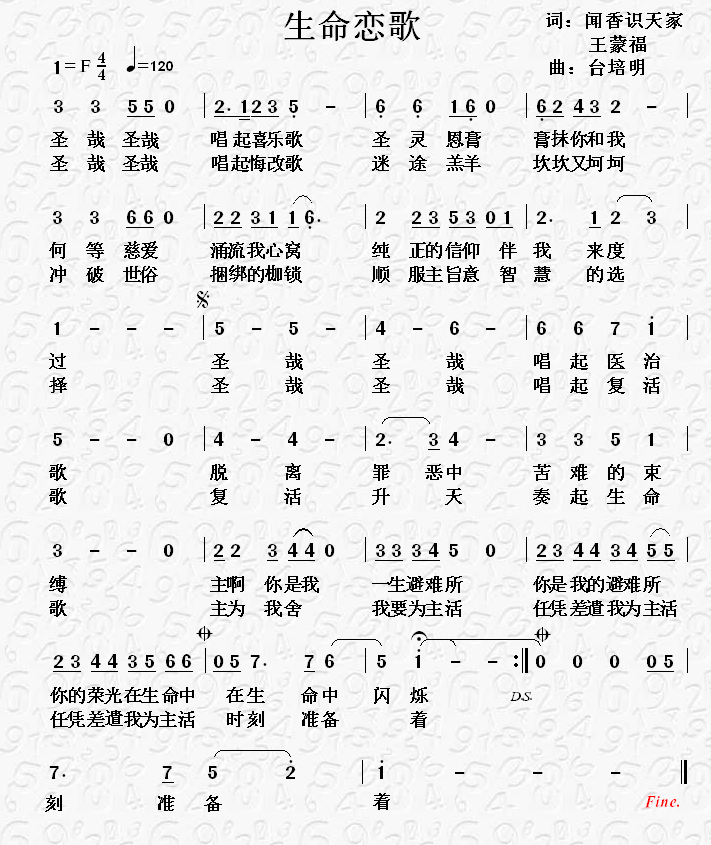 生命恋歌
词：闻香识天家
王蒙福
1=F 4/4 ♩=120
曲：台培明
3 3 5 5 0 | 2· 1 2 3 5 - | 6 6 1 6 0 | 6 2 4 3 2 - |
圣 哉 圣哉 唱起喜乐歌 圣 灵 恩膏 膏抹你和我
圣 哉 圣哉 唱起悔改歌 迷 途 羔羊 坎坎又坷坷
3 3 6 6 0 | 2 2 3 1 1 6· | 2 2 3 5 3 0 1 | 2· 1 2 3 |
何 等 慈爱 涌流我心窝 纯 正的信仰 伴 我 来度
冲 破 世俗 捆绑的枷锁 顺 服主旨意 智 慧 的选
1 - - - | 5 - 5 - | 4 - 6 - | 6 6 7 1 |
过 圣 哉 圣 哉 唱 起 医 治
择 圣 哉 圣 哉 唱 起 复 活
5 - - 0 | 4 - 4 - | 2· 3 4 - | 3 3 5 1 |
歌 脱 离 罪 恶中 苦 难 的 束
歌 复 活 升 天 奏 起 生 命
3 - - 0 | 2 2 3 4 4 0 | 3 3 3 4 5 0 | 2 3 4 4 3 4 5 5 |
缚 主啊 你是我 一生避难所 你是我的避难所
歌 主为 我舍 我要为主活 任凭差遣我为主活
2 3 4 4 3 5 6 6 | 0 5 7· 7 6 | 5 1 - - :‖ 0 0 0 0 5 |
你的荣光在生命中 在生 命中 闪 烁 D.S.
任凭差遣我为主活 时刻 准备 着
7· 7 5 2 | 1 - - - ‖
刻 准 备 着 Fine.